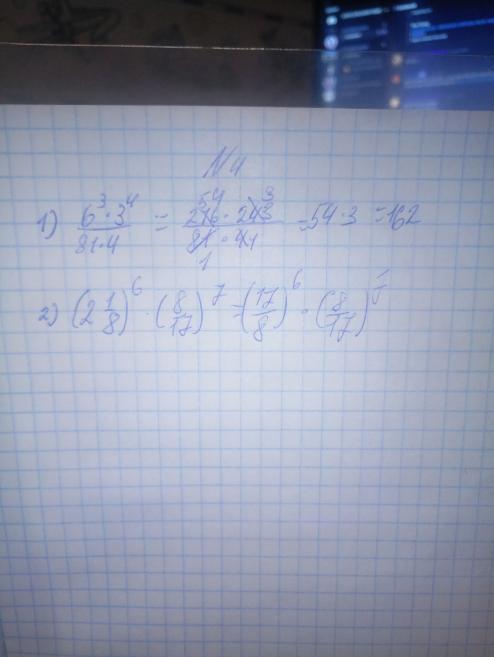 N4
1) 6³·3⁴ / 81·4 = 216·243 / 81·4 = 54·3 = 162
2) (2 1/8)⁶ · (8/17)⁷ = (17/8)⁶ · (8/17)